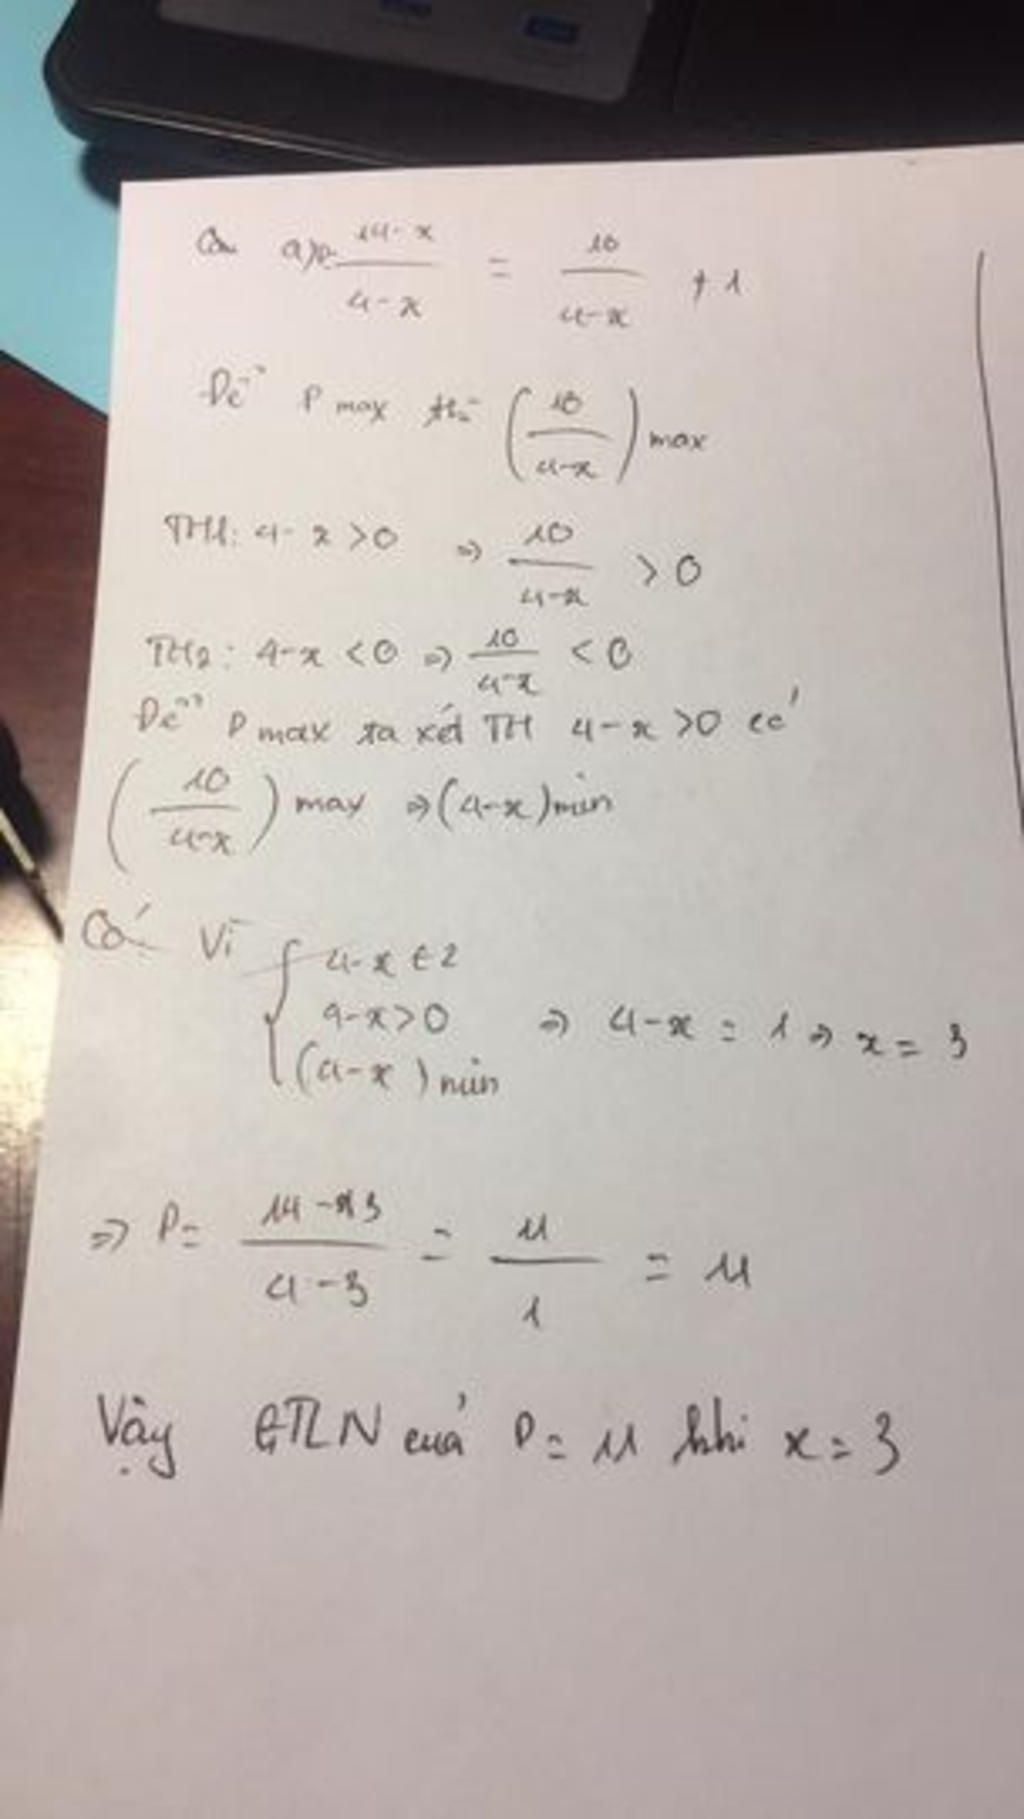 Câu a) P = (14-x)/(4-x) = 10/(4-x) + 1
Để P max thì (10/(4-x)) max
TH1: 4-x > 0 => 10/(4-x) > 0
TH2: 4-x < 0 => 10/(4-x) < 0
Để P max ta xét TH 4-x > 0 có
(10/(4-x)) max => (4-x) min
Có Vì { 4-x ∈ Z
4-x > 0 => 4-x = 1 => x = 3
(4-x) min
=> P = (14-3)/(4-3) = 11/1 = 11
Vậy GTLN của P = 11 khi x = 3